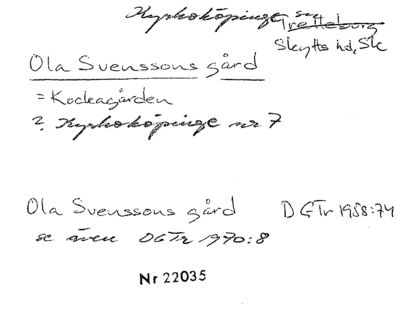 Kyrkoköpinge sn
Trelleborg
Skytts hd, Sk
Ola Svenssons gård
= Kockagården
? Kyrkoköpinge nr 7
Ola Svenssons gård DGTr 1958:74
se även DGTr 1970:8
Nr 22035